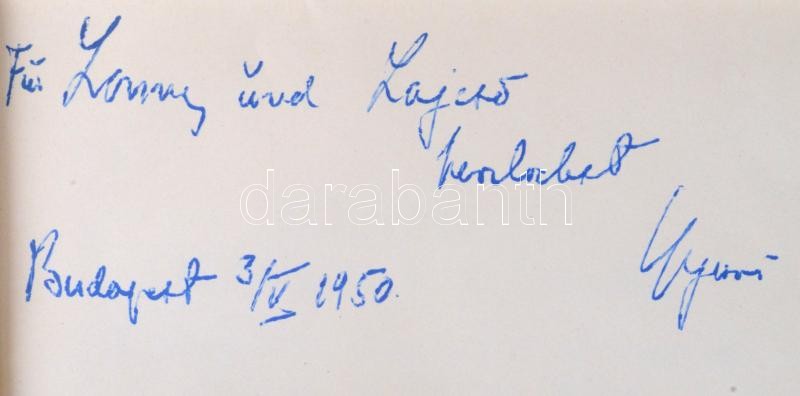 Für Lonny und Lajcsó
herzlichst
darabanth
Budapest 3/V 1950.